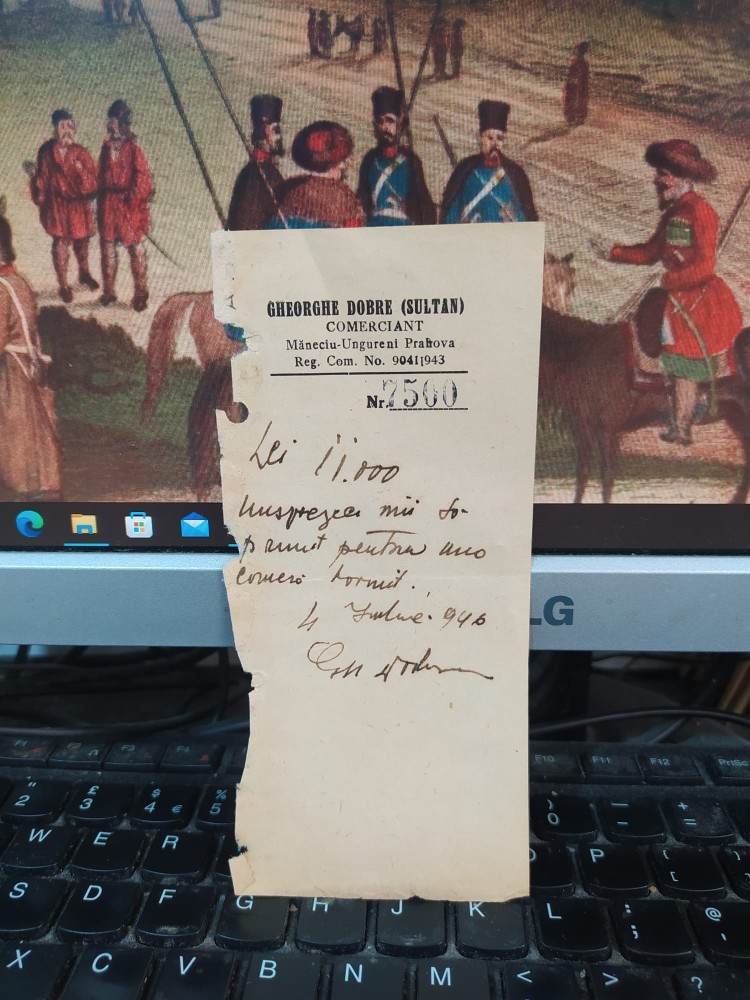 GHEORGHE DOBRE (SULTAN)
COMERCIANT
Măneciu-Ungureni Prahova
Reg. Com. No. 9041|943
Nr. 7500
Lei 11.000
mii
pentru
4 Iulie 946
LG
F10 F11 F12 PrtSc
2 £ 3 $ 4 € % 5 ) 0 - + =
W E R P { [ } ]
S D F G H J K L : ; @
X C V B N M < > ?